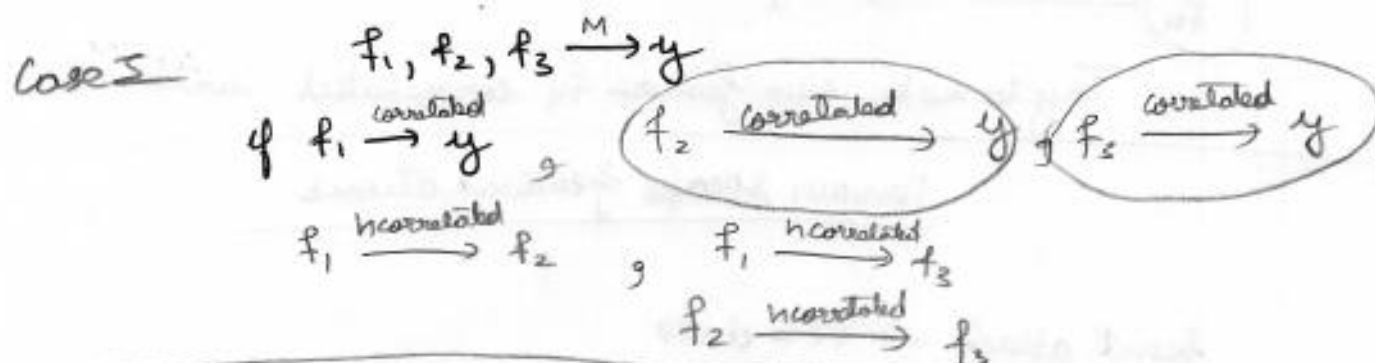 f₁, f₂, f₃ —M→ y
Case I
if f₁ —correlated→ y , f₂ —correlated→ y , f₃ —correlated→ y
f₁ —ncorrelated→ f₂ , f₁ —ncorrelated→ f₃
f₂ —ncorrelated→ f₃